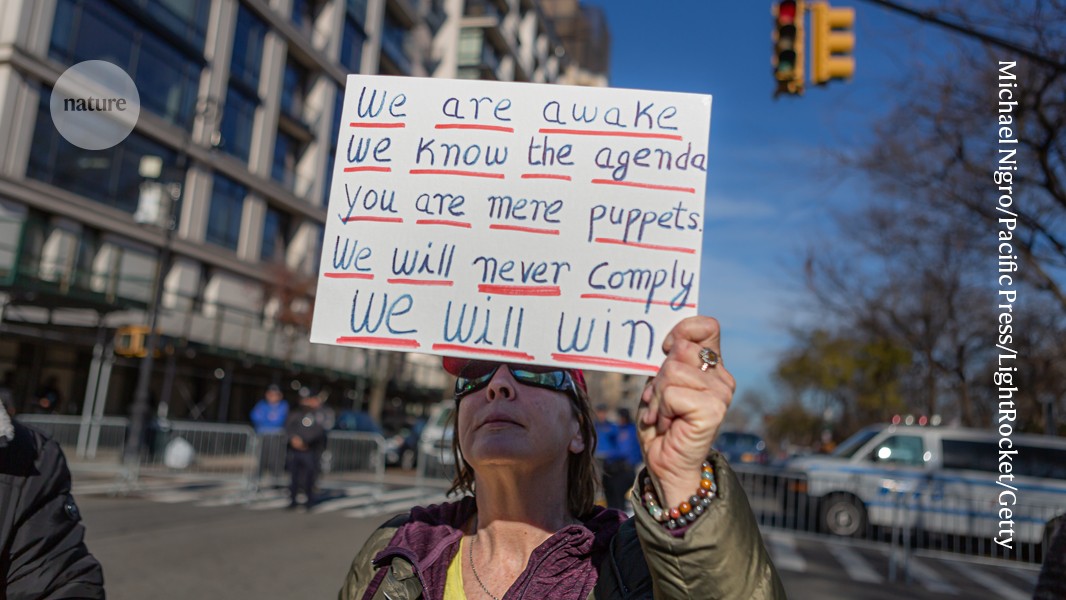 nature
We are awake
we know the agenda
you are mere puppets.
We will never comply
We will win
Michael Nigro/Pacific Press/LightRocket/Getty